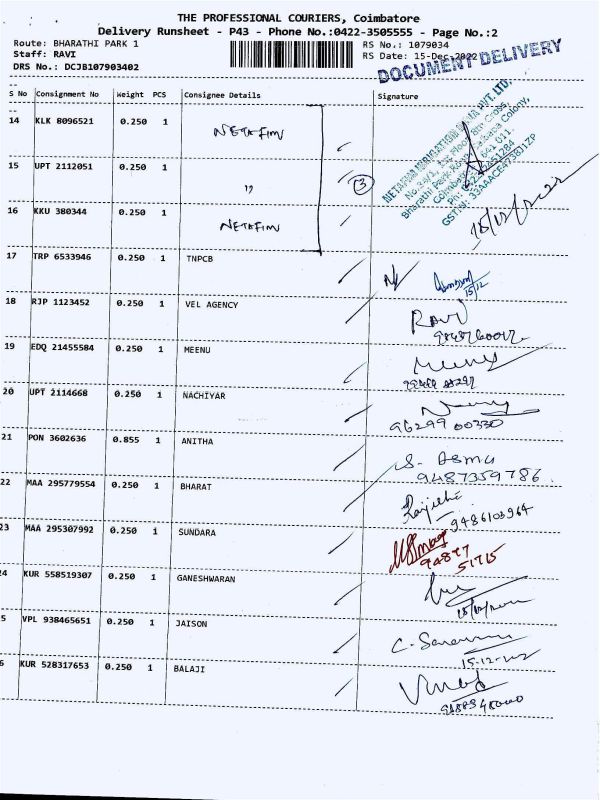 THE PROFESSIONAL COURIERS, Coimbatore
Delivery Runsheet - P43 - Phone No.:0422-3505555 - Page No.:2
Route: BHARATHI PARK 1 RS No.: 1079034
Staff: RAVI RS Date: 15-Dec-2022
DRS No.: DCJB107903402
DOCUMENT DELIVERY
S No Consignment No Weight PCS Consignee Details Signature
14 KLK 8096521 0.250 1 NETAFIM
15 UPT 2112051 0.250 1 " 3
16 KKU 380344 0.250 1 NETAFIM
NETAFIM IRRIGATION INDIA PVT. LTD.
Bharathi Park Road, Colony,
Coimbatore - 641 011.
15/12/2022
17 TRP 6533946 0.250 1 TNPCB 15/12
18 RJP 1123452 0.250 1 VEL AGENCY RAVI
19 EDQ 21455584 0.250 1 MEENU
20 UPT 2114668 0.250 1 NACHIYAR
96299 00330
21 PON 3602636 0.855 1 ANITHA S. Asma
9487359786
22 MAA 295779554 0.250 1 BHARAT
9486103964
23 MAA 295307992 0.250 1 SUNDARA
94877
51715
24 KUR 558519307 0.250 1 GANESHWARAN
15/12/2022
5 VPL 938465651 0.250 1 JAISON
15-12-2022
6 KUR 528317653 0.250 1 BALAJI